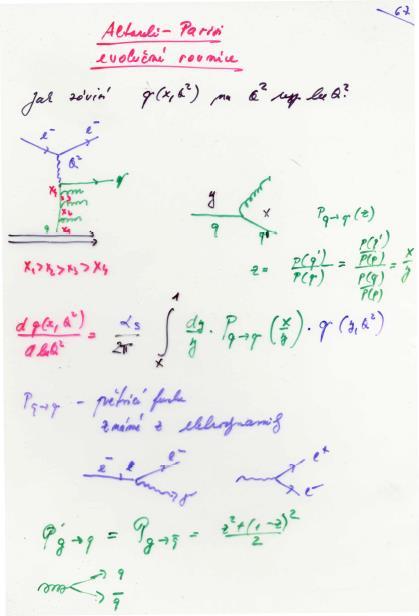 67
Altareli - Parisi
evoluční rovnice
Jak závisí q(x,Q²) na Q² resp ln Q²?
e⁻ e⁻
Q²
x₁
x₃
x₂
q x₁
x₁>x₂>x₃>x₄
y x
q q'
P q→q (z)
z = p(q')/p(q) = (p(q')/p(p))/(p(q)/p(p)) = x/y
d q(x,Q²)/d ln Q² = αs/2π ∫ₓ¹ dy/y · P q→q (x/y) · q(y,Q²)
P q→q - větvící funkce
známé z elektrodynamiky
e⁻ e e⁻ γ
e⁺ e⁻
P g→q = P g→q̄ = z²+(1-z)²/2
q
q̄